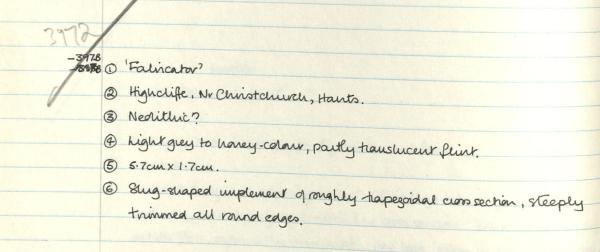 3972
-3978
① 'Fabricator'
② Highcliffe, Nr Christchurch, Hants.
③ Neolithic?
④ Light grey to honey-colour, partly translucent flint.
⑤ 5.7cm x 1.7cm.
⑥ Slug-shaped implement of roughly trapezoidal cross section, steeply
trimmed all round edges.